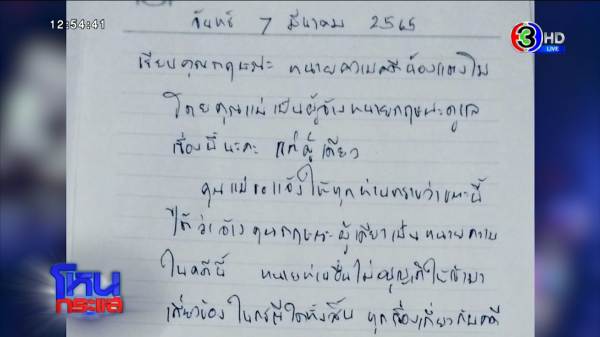 12:54:41
3 HD
LIVE
จันทร์ 7 มีนาคม 2565
เรียนคุณกฤษณะ ทนายความคดีน้องแตงโม
โดยคุณแม่เป็นผู้จ้างทนายกฤษณะดูแล
เรื่องนี้นะคะ แต่ผู้เดียว
คุณแม่ขอแจ้งให้ทุกท่านทราบว่าขณะนี้
ได้ว่าจ้างคุณกฤษณะผู้เดียวเป็นทนายความ
ในคดีนี้ ทนายท่านอื่นไม่อนุญาติให้เข้ามา
เกี่ยวข้องในกรณีใดทั้งสิ้น ทุกเรื่องเกี่ยวกับคดี
โหนกระแส